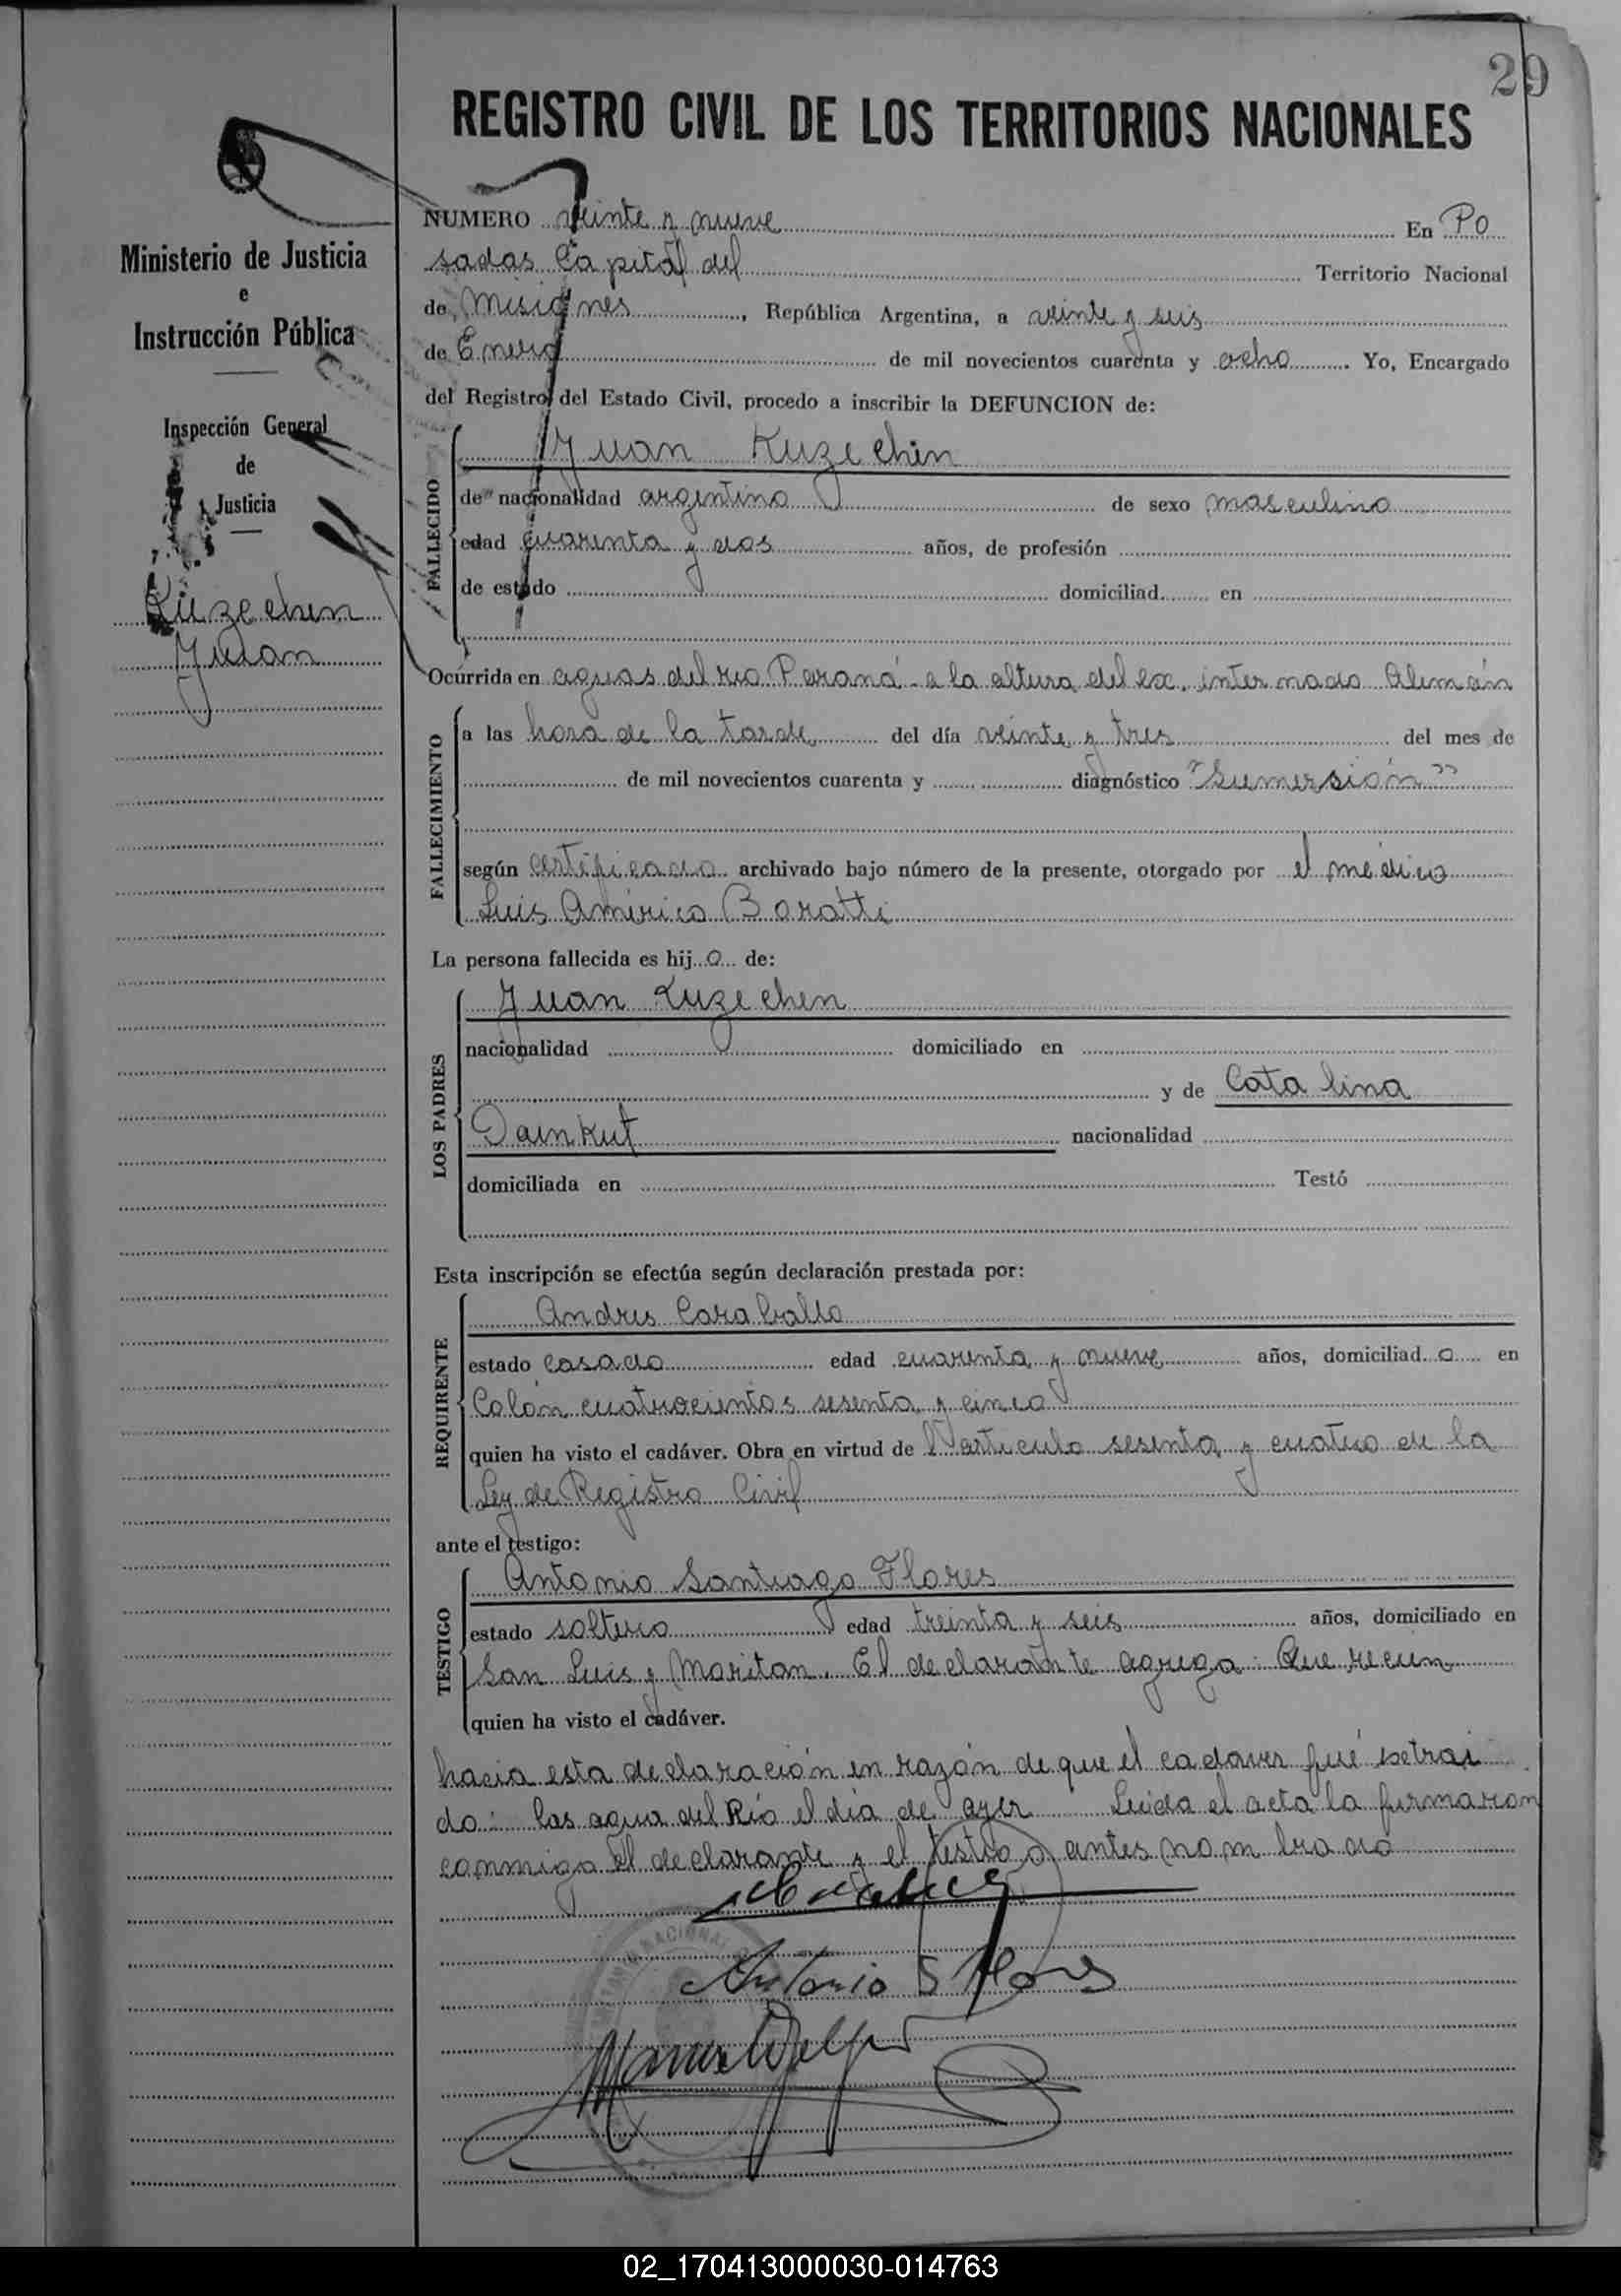 29
REGISTRO CIVIL DE LOS TERRITORIOS NACIONALES
Ministerio de Justicia
e
Instrucción Pública
Inspección General
de
Justicia
Kuzechen
Juan
NUMERO veinte y nueve En Po
sadas Capital del Territorio Nacional
de Misiones, República Argentina, a veinte y seis
de Enero de mil novecientos cuarenta y ocho. Yo, Encargado
del Registro del Estado Civil, procedo a inscribir la DEFUNCION de:
FALLECIDO
Juan Kuzechen
de nacionalidad argentino de sexo masculino
edad cuarenta y dos años, de profesión
de estado domiciliad en
Ocurrida en aguas del rio Paraná - a la altura del ex. internado Alemán
FALLECIMIENTO
a las hora de la tarde del día veinte y tres del mes de
de mil novecientos cuarenta y diagnóstico "Sumersión"
según certificado archivado bajo número de la presente, otorgado por el médico
Luis Américo Boratti
La persona fallecida es hij o de:
LOS PADRES
Juan Kuzechen
nacionalidad domiciliado en
y de Catalina
Dainkut nacionalidad
domiciliada en Testó
Esta inscripción se efectúa según declaración prestada por:
REQUIRENTE
Andres Caraballo
estado casado edad cuarenta y nueve años, domiciliad o en
Colón cuatrocientos sesenta y cinco
quien ha visto el cadáver. Obra en virtud de l'articulo sesenta y cuatro de la
Ley de Registro Civil
ante el testigo:
TESTIGO
Antonio Santiago Flores
estado soltero edad treinta y seis años, domiciliado en
San Luis y Moritan. El declarante agrega: Que recien
quien ha visto el cadáver.
hacia esta declaración en razón de que el cadaver fué
do: las agua del Río el dia de ayer Leida el acta la firmaron
conmigo el declarante y el testigo antes nombrado
Antonio S Flores
02_170413000030-014763